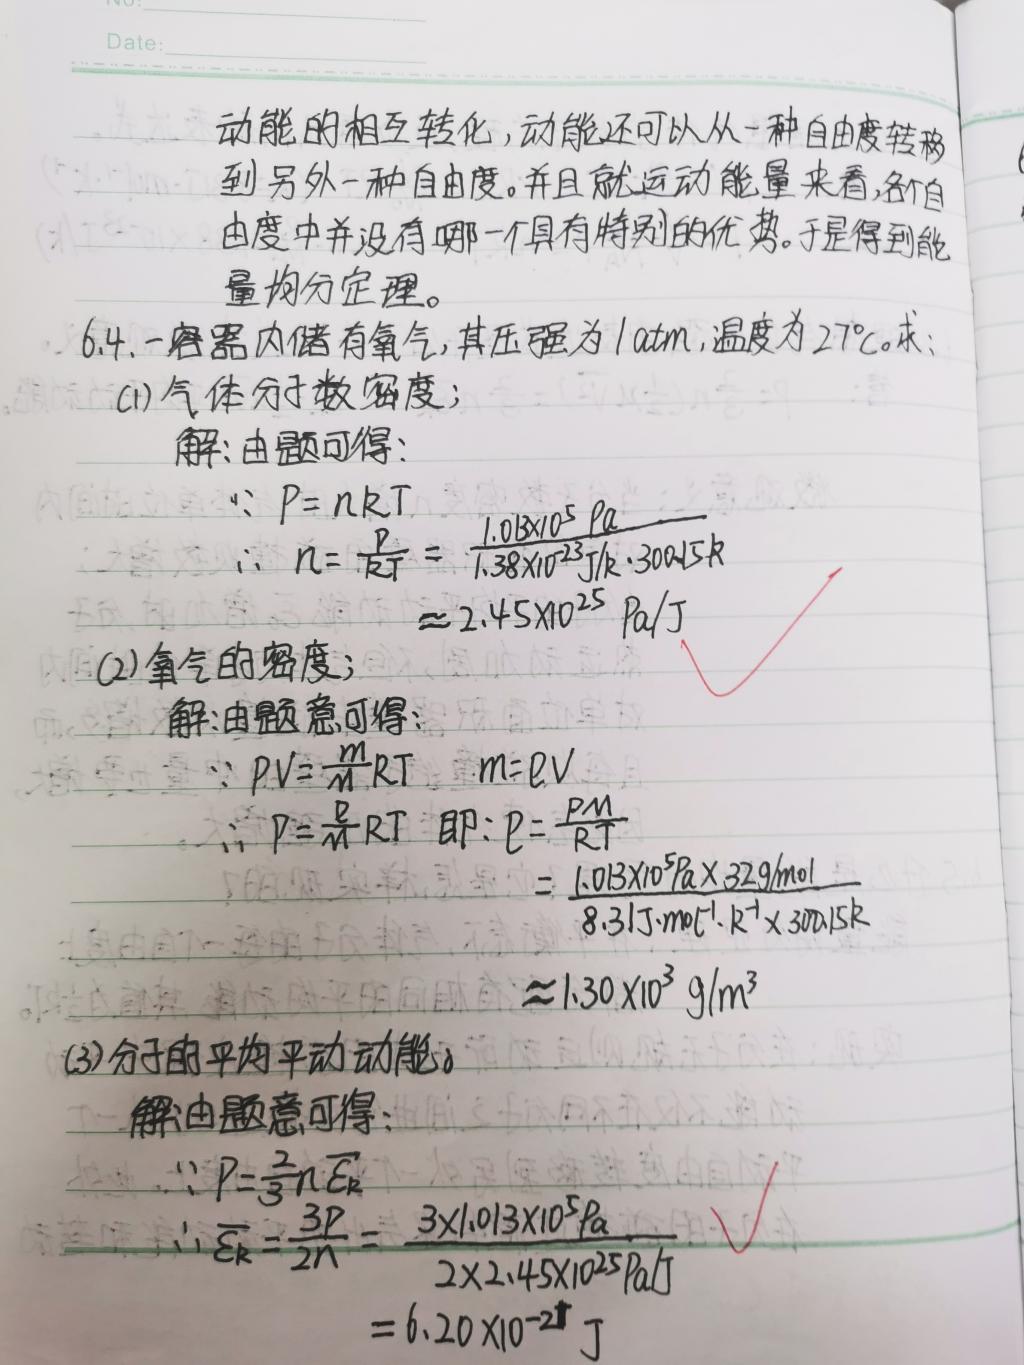 No:
Date:
动能的相互转化,动能还可以从一种自由度转移
到另外一种自由度。并且就运动能量来看,各个自
由度中并没有哪一个具有特别的优势。于是得到能
量均分定理。
6.4.一容器内储有氧气,其压强为1atm,温度为27℃。求:
(1)气体分子数密度;
解:由题可得:
∵ P=nkT
∴ n=P/kT = 1.013×10⁵ Pa / 1.38×10⁻²³J/k·300.15k
≈2.45×10²⁵ Pa/J
(2)氧气的密度;
解:由题意可得:
∵ PV=m/M RT m=ρV
∴ P=ρ/M RT 即:ρ=PM/RT
= 1.013×10⁵Pa×32g/mol / 8.31J·mol⁻¹·k⁻¹×300.15k
≈1.30×10³ g/m³
(3)分子的平均平动动能。
解:由题意可得:
∵ P=2/3 n ε̄k
∴ ε̄k = 3P/2n = 3×1.013×10⁵Pa / 2×2.45×10²⁵Pa/J
=6.20×10⁻²¹ J